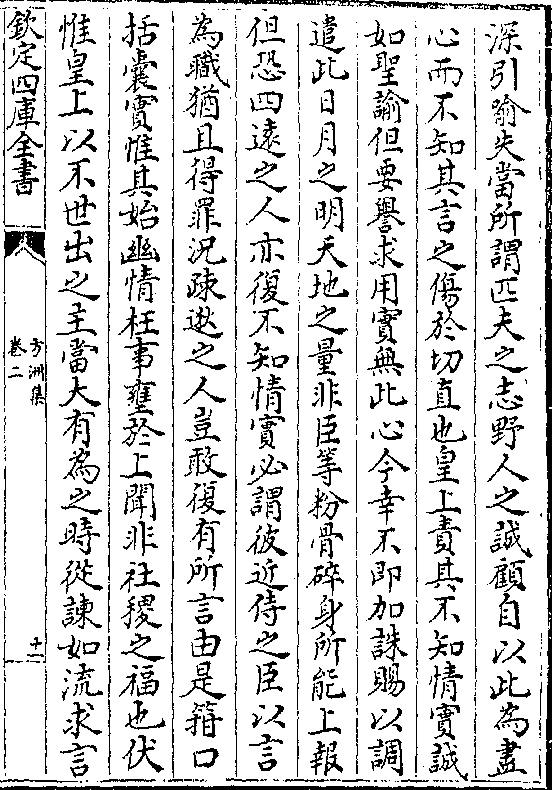 深引喻失當所謂匹夫之志野人之誠顧自以此為盡
心而不知其言之傷於切直也皇上責其不知情實誠
如聖諭但要譽求用實無此心今幸不即加誅賜以調
遣此日月之明天地之量非臣等粉骨碎身所能上報
但恐四遠之人亦復不知情實必謂彼近侍之臣以言
為職猶且得罪況疎逖之人豈敢復有所言由是箝口
括囊實惟其始幽情枉事壅於上聞非社稷之福也伏
惟皇上以不世出之主當大有為之時從諫如流求言
欽定四庫全書
方洲集
卷二
十一